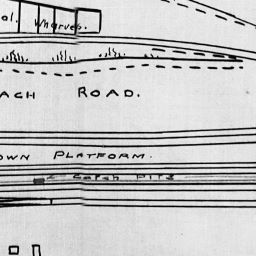 ol. Wharves.
ACH ROAD.
OWN PLATFORM.
Catch Pits